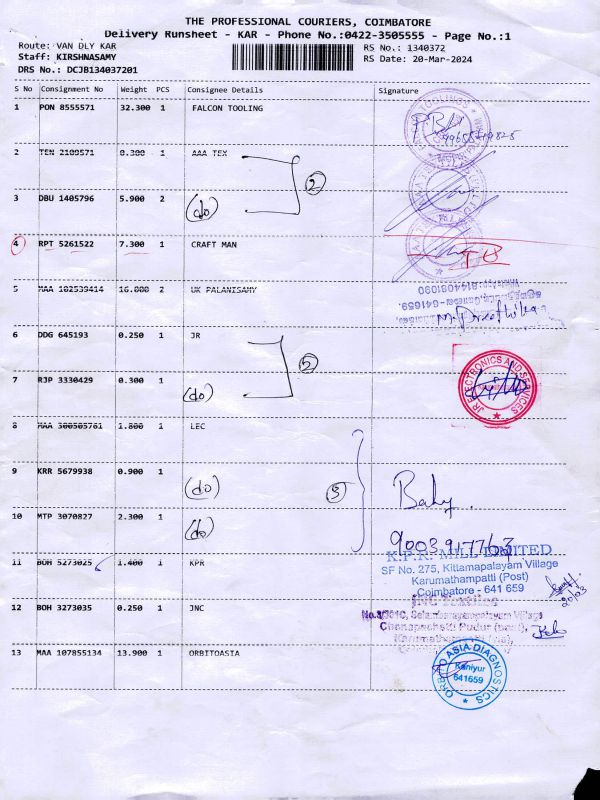 THE PROFESSIONAL COURIERS, COIMBATORE
Delivery Runsheet - KAR - Phone No.:0422-3505555 - Page No.:1
Route: VAN DLY KAR
RS No.: 1340372
Staff: KIRSHNASAMY
RS Date: 20-Mar-2024
DRS No.: DCJB134037201
S No Consignment No Weight PCS Consignee Details Signature
1 PON 8555571 32.300 1 FALCON TOOLING
2 TEN 2109571 0.300 1 AAA TEX
2
3 DBU 1405796 5.900 2 (do)
4 RPT 5261522 7.300 1 CRAFT MAN
5 MAA 102539414 16.000 2 UK PALANISAMY
6 DDG 645193 0.250 1 JR
2
7 RJP 3330429 0.300 1 (do)
JR ELECTRONICS AND SERVICES
8 MAA 300505761 1.800 1 LEC
9 KRR 5679938 0.900 1 (do) 3
10 MTP 3070827 2.300 1 (do)
9003917763
K.P.R. MILL LIMITED
11 BOH 5273025 1.400 1 KPR
SF No. 275, Kittamapalayam Village
Karumathampatti (Post)
Coimbatore - 641 659
20/03
12 BOH 3273035 0.250 1 JNC
13 MAA 107855134 13.900 1 ORBITOASIA
ORBITO ASIA DIAGNOSTICS
Kaniyur
641659